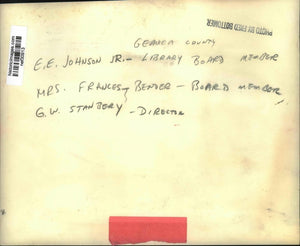 PHOTO BY FRED BOTTOMER
GEAUGA COUNTY
E.E. JOHNSON JR. - LIBRARY BOARD MEMBER
MRS. FRANCES BENDER - BOARD MEMBER
G.W. STANBERY - DIRECTOR